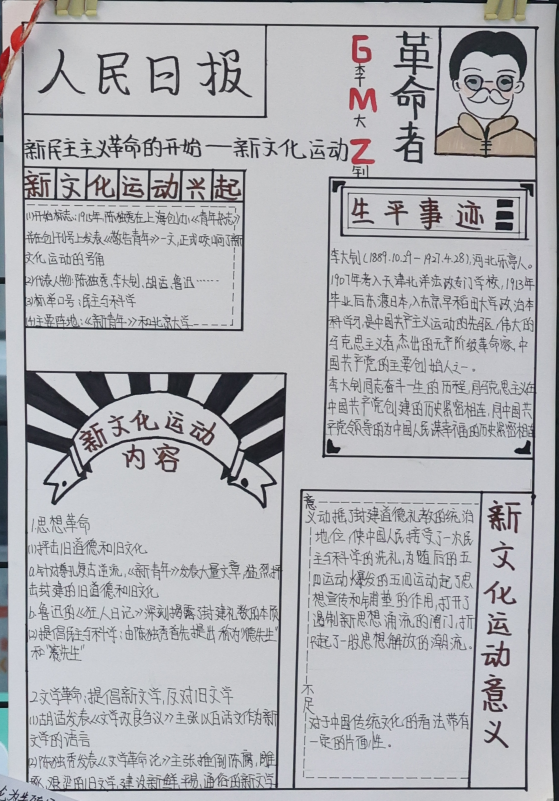 人民日报
新民主主义革命的开始——新文化运动
G M Z
李大钊
革命者
新文化运动兴起
(1)开始标志:1915年,陈独秀在上海创办《青年杂志》
并在创刊号上发表《敬告青年》一文,正式吹响了新
文化运动的号角
(2)代表人物:陈独秀、李大钊、胡适、鲁迅……
(3)标举口号:民主与科学
(4)主要阵地:《新青年》和北京大学
生平事迹
李大钊(1889.10.29-1927.4.28),河北乐亭人。
1907年考入天津北洋法政专门学校,1913年
毕业后东渡日本,入东京早稻田大学政治本
科学习,是中国共产主义运动的先驱,伟大的
马克思主义者、杰出的无产阶级革命家、中
国共产党的主要创始人之一。
李大钊同志奋斗一生的历程,同马克思主义在
中国共产党创建的历史紧密相连,同中国共
产党领导的为中国人民谋幸福的历史紧密相连
新文化运动
内容
1.思想革命
(1)抨击旧道德和旧文化
a.针对尊孔复古逆流,《新青年》发表大量文章,猛烈抨
击封建的旧道德和旧文化
b.鲁迅的《狂人日记》深刻揭露封建礼教的本质
(2)提倡民主与科学:由陈独秀首先提出,称为"德先生"
和"赛先生"
2.文学革命:提倡新文学,反对旧文学
(1)胡适发表《文学改良刍议》主张以白话文作为新
文学的语言
(2)陈独秀发表《文学革命论》主张推倒陈腐、雕
琢、艰涩的旧文学,建设新鲜、平易、通俗的新文学
新文化运动意义
意义
动摇了封建道德礼教的统治
地位,使中国人民接受了一次民
主与科学的洗礼,为随后的五
四运动爆发的五四运动起了思
想宣传和铺垫的作用,打开了
遏制新思想涌流的闸门,掀
起了一股思想解放的潮流。
不足
对于中国传统文化的看法带有
一定的片面性。